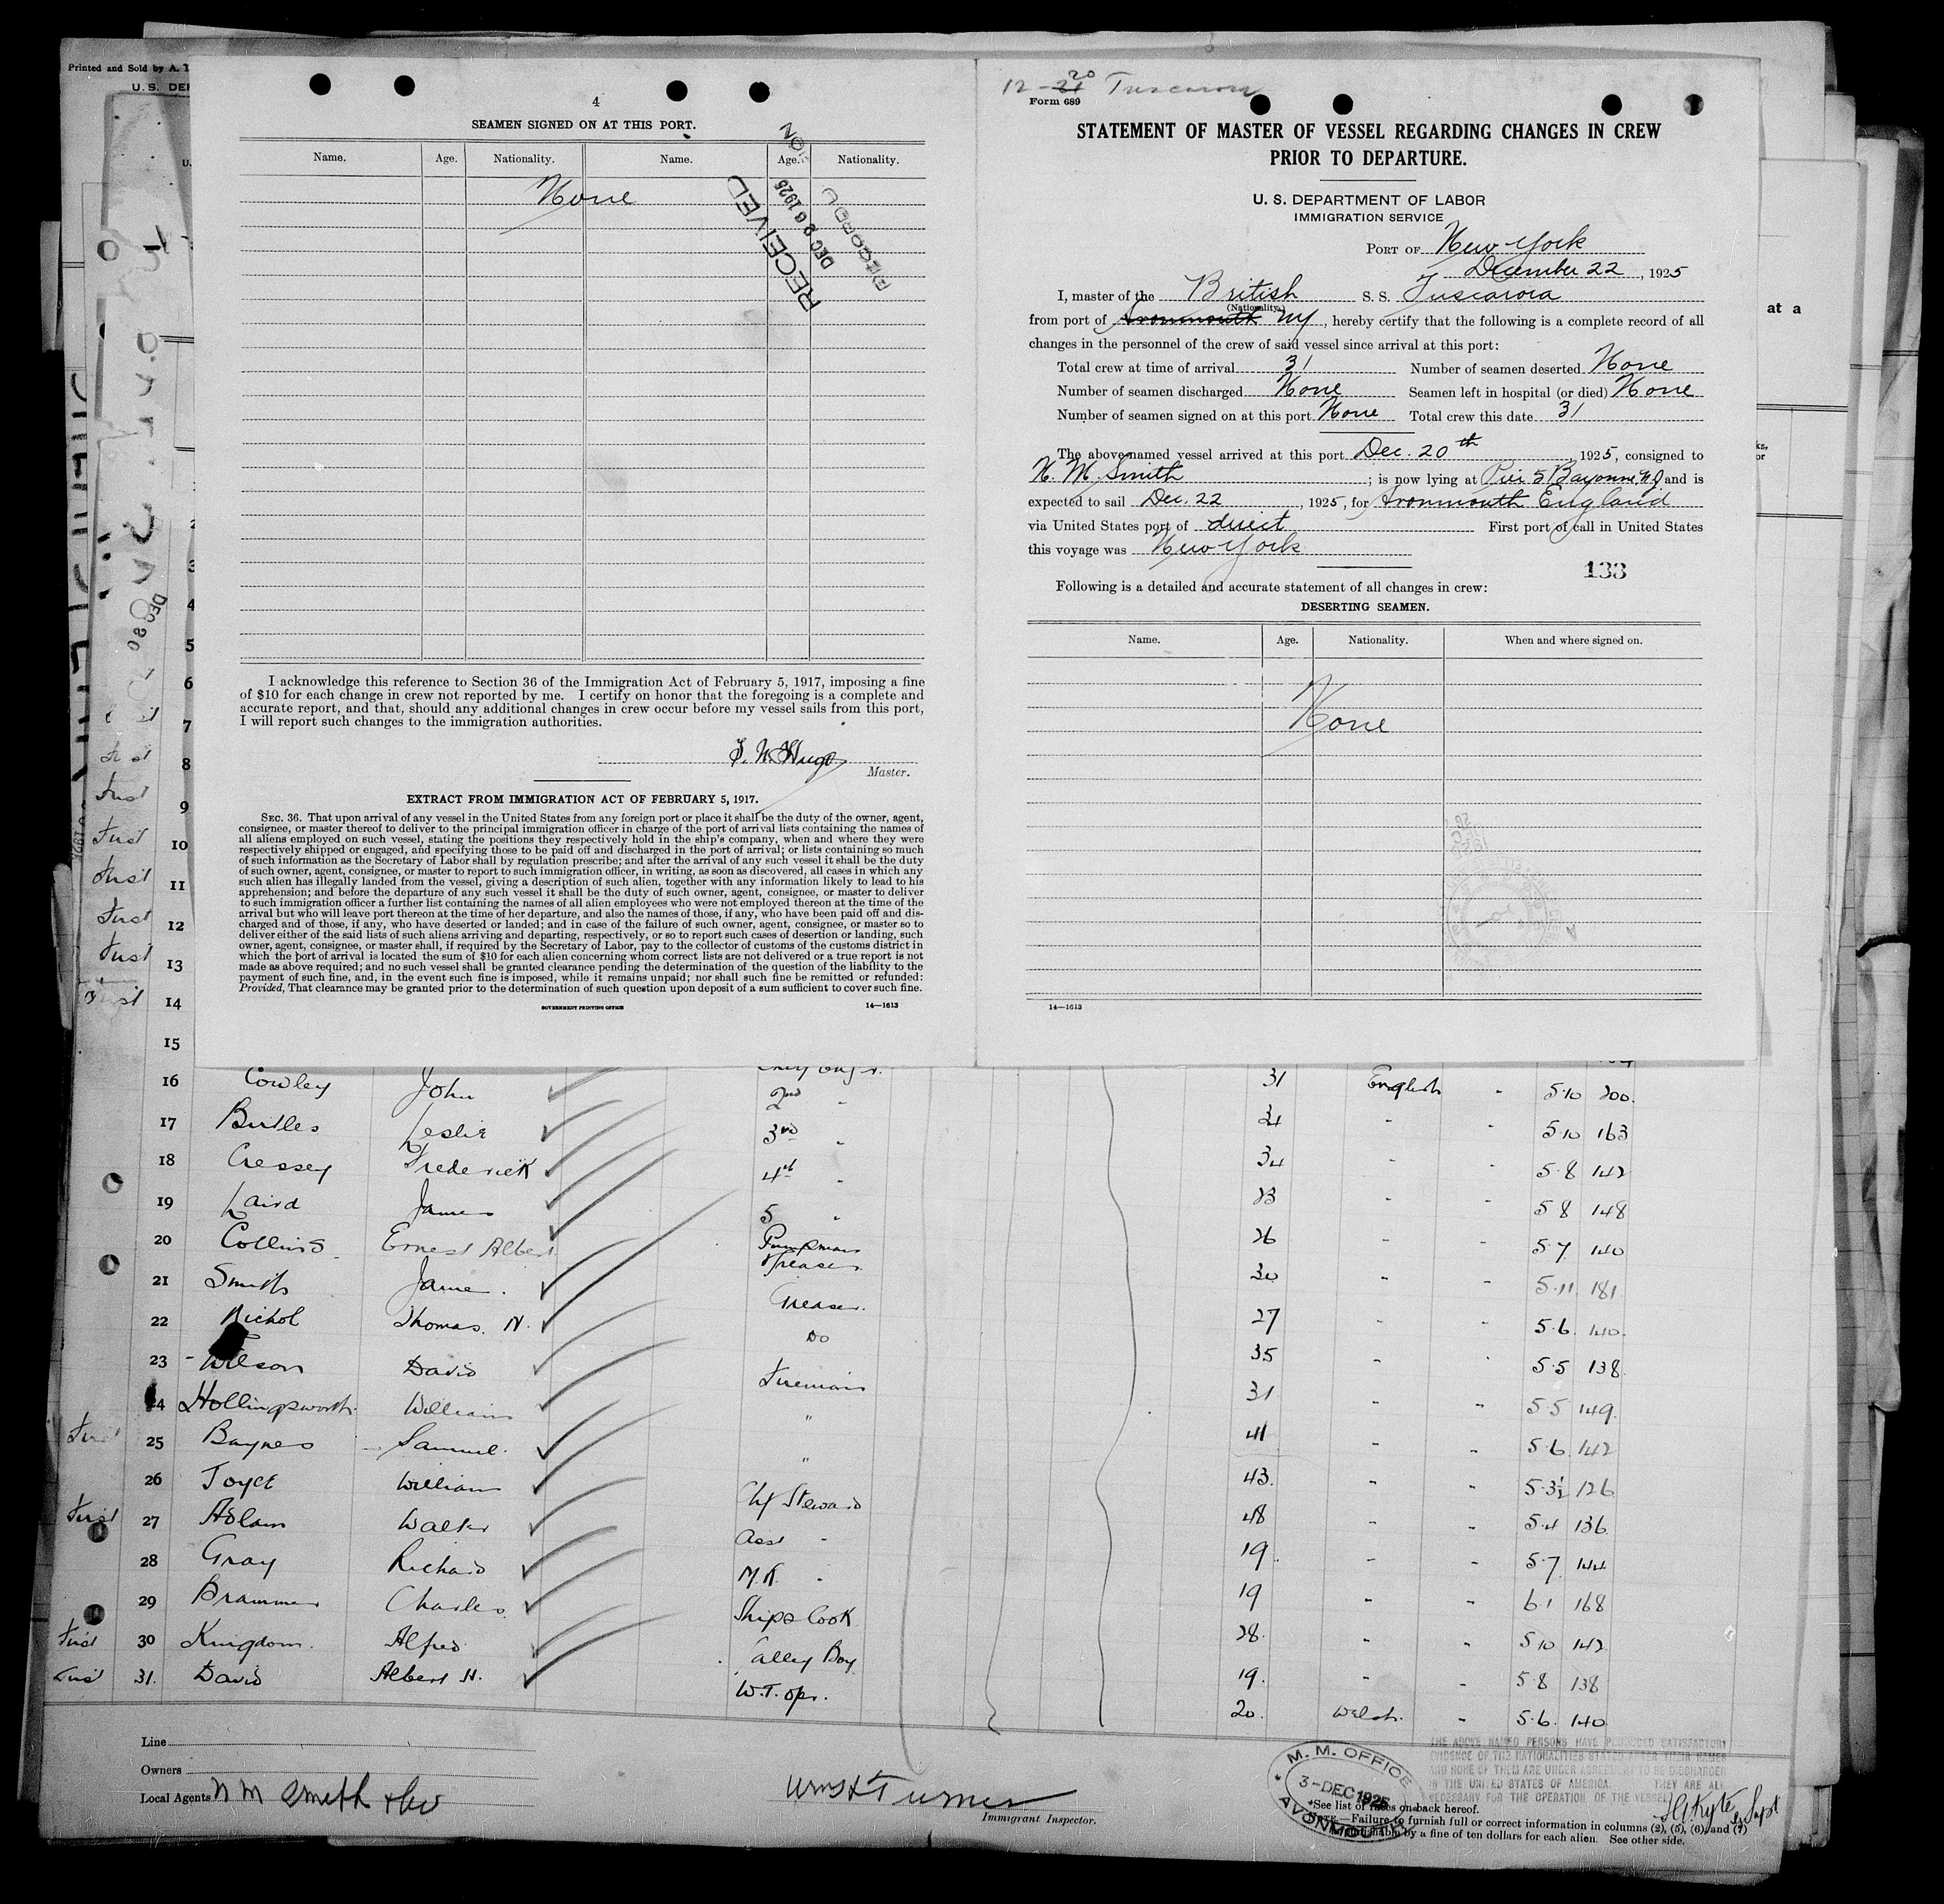 Printed and Sold by A.
U. S. DE
4
SEAMEN SIGNED ON AT THIS PORT.
Name. Age. Nationality. Name. Age. Nationality.
None
RECEIVED
DEC 26 1925
I acknowledge this reference to Section 36 of the Immigration Act of February 5, 1917, imposing a fine
of $10 for each change in crew not reported by me. I certify on honor that the foregoing is a complete and
accurate report, and that, should any additional changes in crew occur before my vessel sails from this port,
I will report such changes to the immigration authorities.
Master.
EXTRACT FROM IMMIGRATION ACT OF FEBRUARY 5, 1917.
SEC. 36. That upon arrival of any vessel in the United States from any foreign port or place it shall be the duty of the owner, agent,
consignee, or master thereof to deliver to the principal immigration officer in charge of the port of arrival lists containing the names of
all aliens employed on such vessel, stating the positions they respectively hold in the ship's company, when and where they were
respectively shipped or engaged, and specifying those to be paid off and discharged in the port of arrival; or lists containing so much
of such information as the Secretary of Labor shall by regulation prescribe; and after the arrival of any such vessel it shall be the duty
of such owner, agent, consignee, or master to report to such immigration officer, in writing, as soon as discovered, all cases in which any
such alien has illegally landed from the vessel, giving a description of such alien, together with any information likely to lead to his
apprehension; and before the departure of any such vessel it shall be the duty of such owner, agent, consignee, or master to deliver
to such immigration officer a further list containing the names of all alien employees who were not employed thereon at the time of the
arrival but who will leave port thereon at the time of her departure, and also the names of those, if any, who have been paid off and dis-
charged and of those, if any, who have deserted or landed; and in case of the failure of such owner, agent, consignee, or master so to
deliver either of the said lists of such aliens arriving and departing, respectively, or so to report such cases of desertion or landing, such
owner, agent, consignee, or master shall, if required by the Secretary of Labor, pay to the collector of customs of the customs district in
which the port of arrival is located the sum of $10 for each alien concerning whom correct lists are not delivered or a true report is not
made as above required; and no such vessel shall be granted clearance pending the determination of the question of the liability to the
payment of such fine, and, in the event such fine is imposed, while it remains unpaid; nor shall such fine be remitted or refunded:
Provided, That clearance may be granted prior to the determination of such question upon deposit of a sum sufficient to cover such fine.
GOVERNMENT PRINTING OFFICE 14—1613
12-21 20 Tuscarora
Form 689
STATEMENT OF MASTER OF VESSEL REGARDING CHANGES IN CREW
PRIOR TO DEPARTURE.
U. S. DEPARTMENT OF LABOR
IMMIGRATION SERVICE
PORT OF New York
December 22, 1925
I, master of the British S. S. Tuscarora
(Nationality.)
from port of Avonmouth NY, hereby certify that the following is a complete record of all
changes in the personnel of the crew of said vessel since arrival at this port:
Total crew at time of arrival 31 Number of seamen deserted None
Number of seamen discharged None Seamen left in hospital (or died) None
Number of seamen signed on at this port None Total crew this date 31
The above-named vessel arrived at this port Dec. 20th, 1925, consigned to
N. M. Smith; is now lying at Pier 5 Bayonne N.J and is
expected to sail Dec. 22, 1925, for Avonmouth England
via United States port of direct First port of call in United States
this voyage was New York
133
Following is a detailed and accurate statement of all changes in crew:
DESERTING SEAMEN.
Name. Age. Nationality. When and where signed on.
None
14—1613
at a
2
3
4
5
6
7
8
First 9
First 10
First 11
First 12
First 13
First 14
15
16 Cowley John 2nd " 31 English " 5 10 200.
17 Birtles Leslie 3rd " 34 " " 5 10 163
18 Cressey Frederick 4th " 34 " " 5 8 142
19 Laird James 5 " 23 " " 5 8 148
20 Collins Ernest Albert Pumpman 26 " " 5 7 140
21 Smith James. Greaser. 30 " " 5.11. 181.
22 Nichol Thomas. N. Greaser. 27 " " 5.6. 140.
23 Wilson David Do 35 " " 5.5 138.
24 Hollingsworth William Fireman 31 " " 5.5 149.
25 Baynes Samuel. " 41 " " 5.6. 142
26 Joyce William " 43. " " 5.3½ 126
First 27 Adam Walter Chf Steward 48 " " 5.4 136.
28 Gray Richard Asst " 19. " " 5.7 144
29 Brammer Charles. M.R. " 19 " " 6.1 168
First 30 Kingdom. Alfred Ships Cook 28. " " 5 10 142.
First 31. David Albert H. Galley Boy 19. " " 5.8 138
W.T. opr. 20. Welsh. " 5.6. 140
Line
Owners
Local Agents N M Smith & Co
Wm H Turner
Immigrant Inspector.
M. M. OFFICE
3-DEC 1925
AVONMOUTH
THE ABOVE NAMED PERSONS HAVE PRODUCED SATISFACTORY
EVIDENCE OF THE NATIONALITIES STATED AFTER THEIR NAMES
AND NONE OF THEM ARE UNDER AGREEMENT TO BE DISCHARGED
IN THE UNITED STATES OF AMERICA. THEY ARE ALL
NECESSARY FOR THE OPERATION OF THE VESSEL.
Supt
*See list of races on back hereof.
NOTE.—Failure to furnish full or correct information in columns (2), (5), (6), and (7)
is punishable by a fine of ten dollars for each alien. See other side.